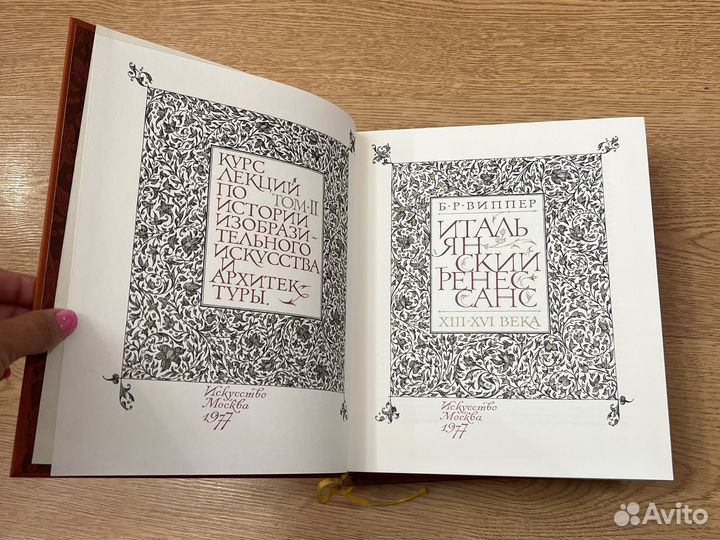 КУРС
ЛЕКЦИЙ
ТОМ·II
ПО
ИСТОРИИ
ИЗОБРАЗИ-
ТЕЛЬНОГО
ИСКУССТВА
И
АРХИТЕК-
ТУРЫ.
Искусство
Москва
1977
Б·Р·ВИППЕР
ИТАЛЬ
ЯН
СКИЙ
РЕНЕС
САНС
XIII·XVI ВЕКА
Искусство
Москва
1977
Avito